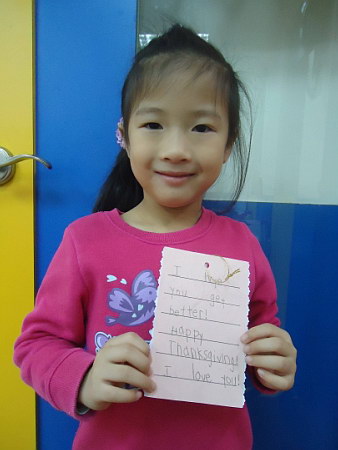 I hope
you get
better!
Happy
Thanksgiving!
I love you!